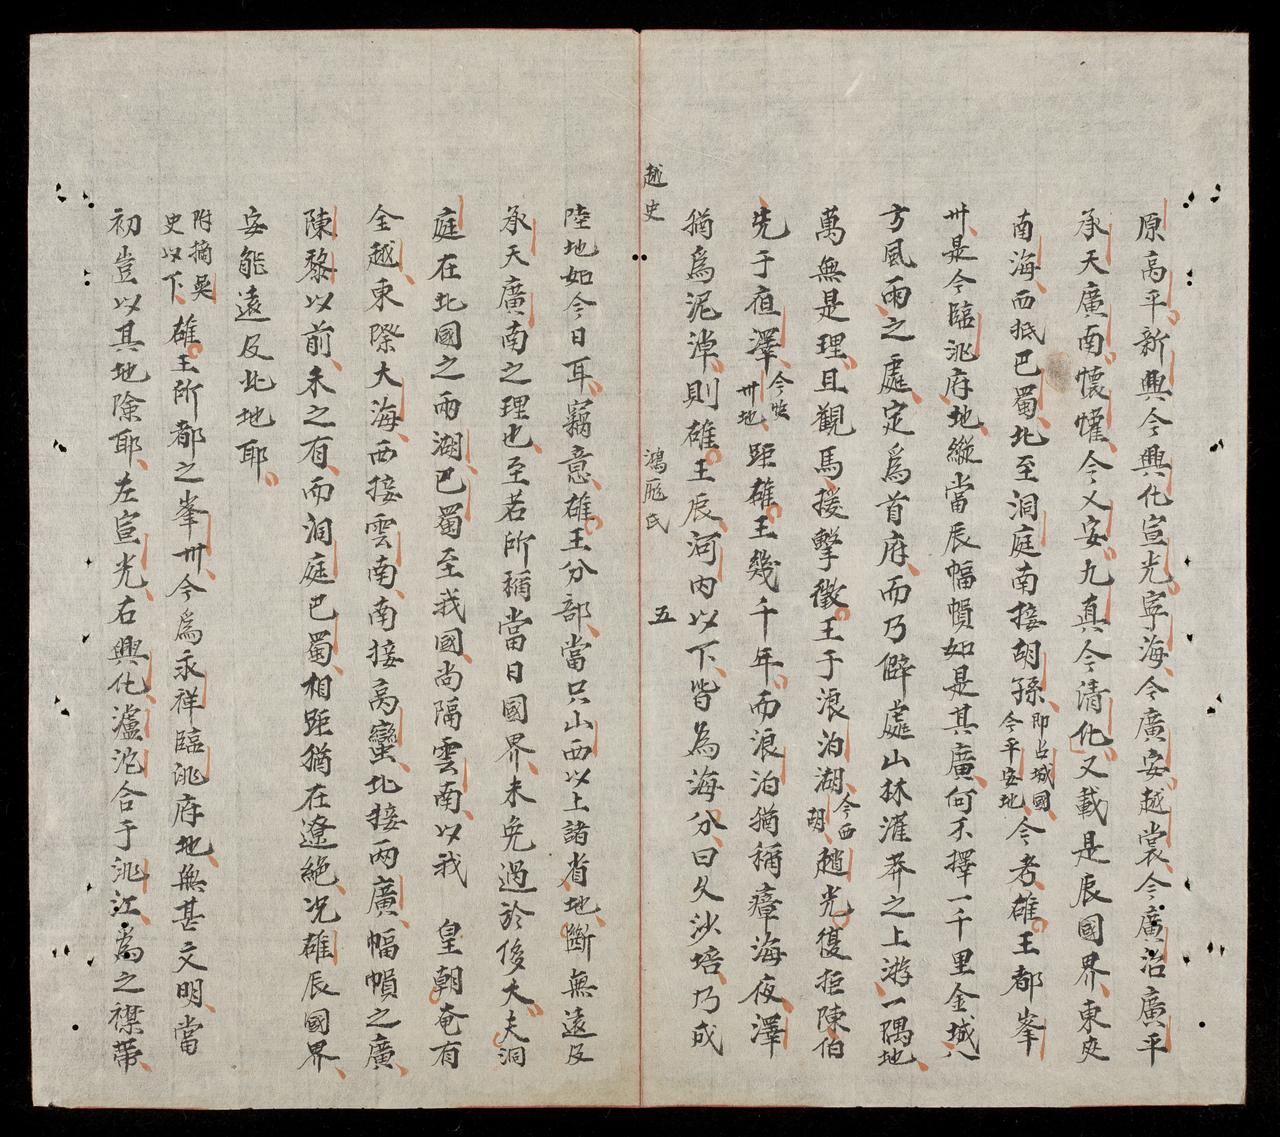 原高平新興今興化宣光寧海今廣安越裳今廣治廣平
承天廣南懷懽今乂安九真今清化又載是辰國界東夾
南海西抵巴蜀北至洞庭南接胡孫即占城國今平定地今考雄王都峯
州是今臨洮府地縱當辰幅幀如是其廣何不擇一千里金城八
方風雨之處定為首府而乃僻處山林灌莽之上游一隅地
萬無是理且觀馬援擊徵王于浪泊湖今西湖趙光復拒陳伯
先于夜澤今快州地距雄王幾千年而浪泊猶稱瘴海夜澤
猶為泥淖則雄王辰河内以下皆為海分日久沙培乃成
越史
鴻厖氏
五
陸地如今日耳竊意雄王分部當只山西以上諸省地斷無遠及
承天廣南之理也至若所稱當日國界未免過於侈大夫洞
庭在北國之兩湖巴蜀至我國尚隔雲南以我 皇朝奄有
全越東際大海西接雲南南接高蠻北接兩廣幅幀之廣
陳黎以前未之有而洞庭巴蜀相距猶在遼絕况雄辰國界
安能遠及此地耶
附摘吳史以下雄王所都之峯州今為永祥臨洮府地無甚文明當
初豈以其地險耶左宣光右興化瀘沱合于洮江為之襟帶